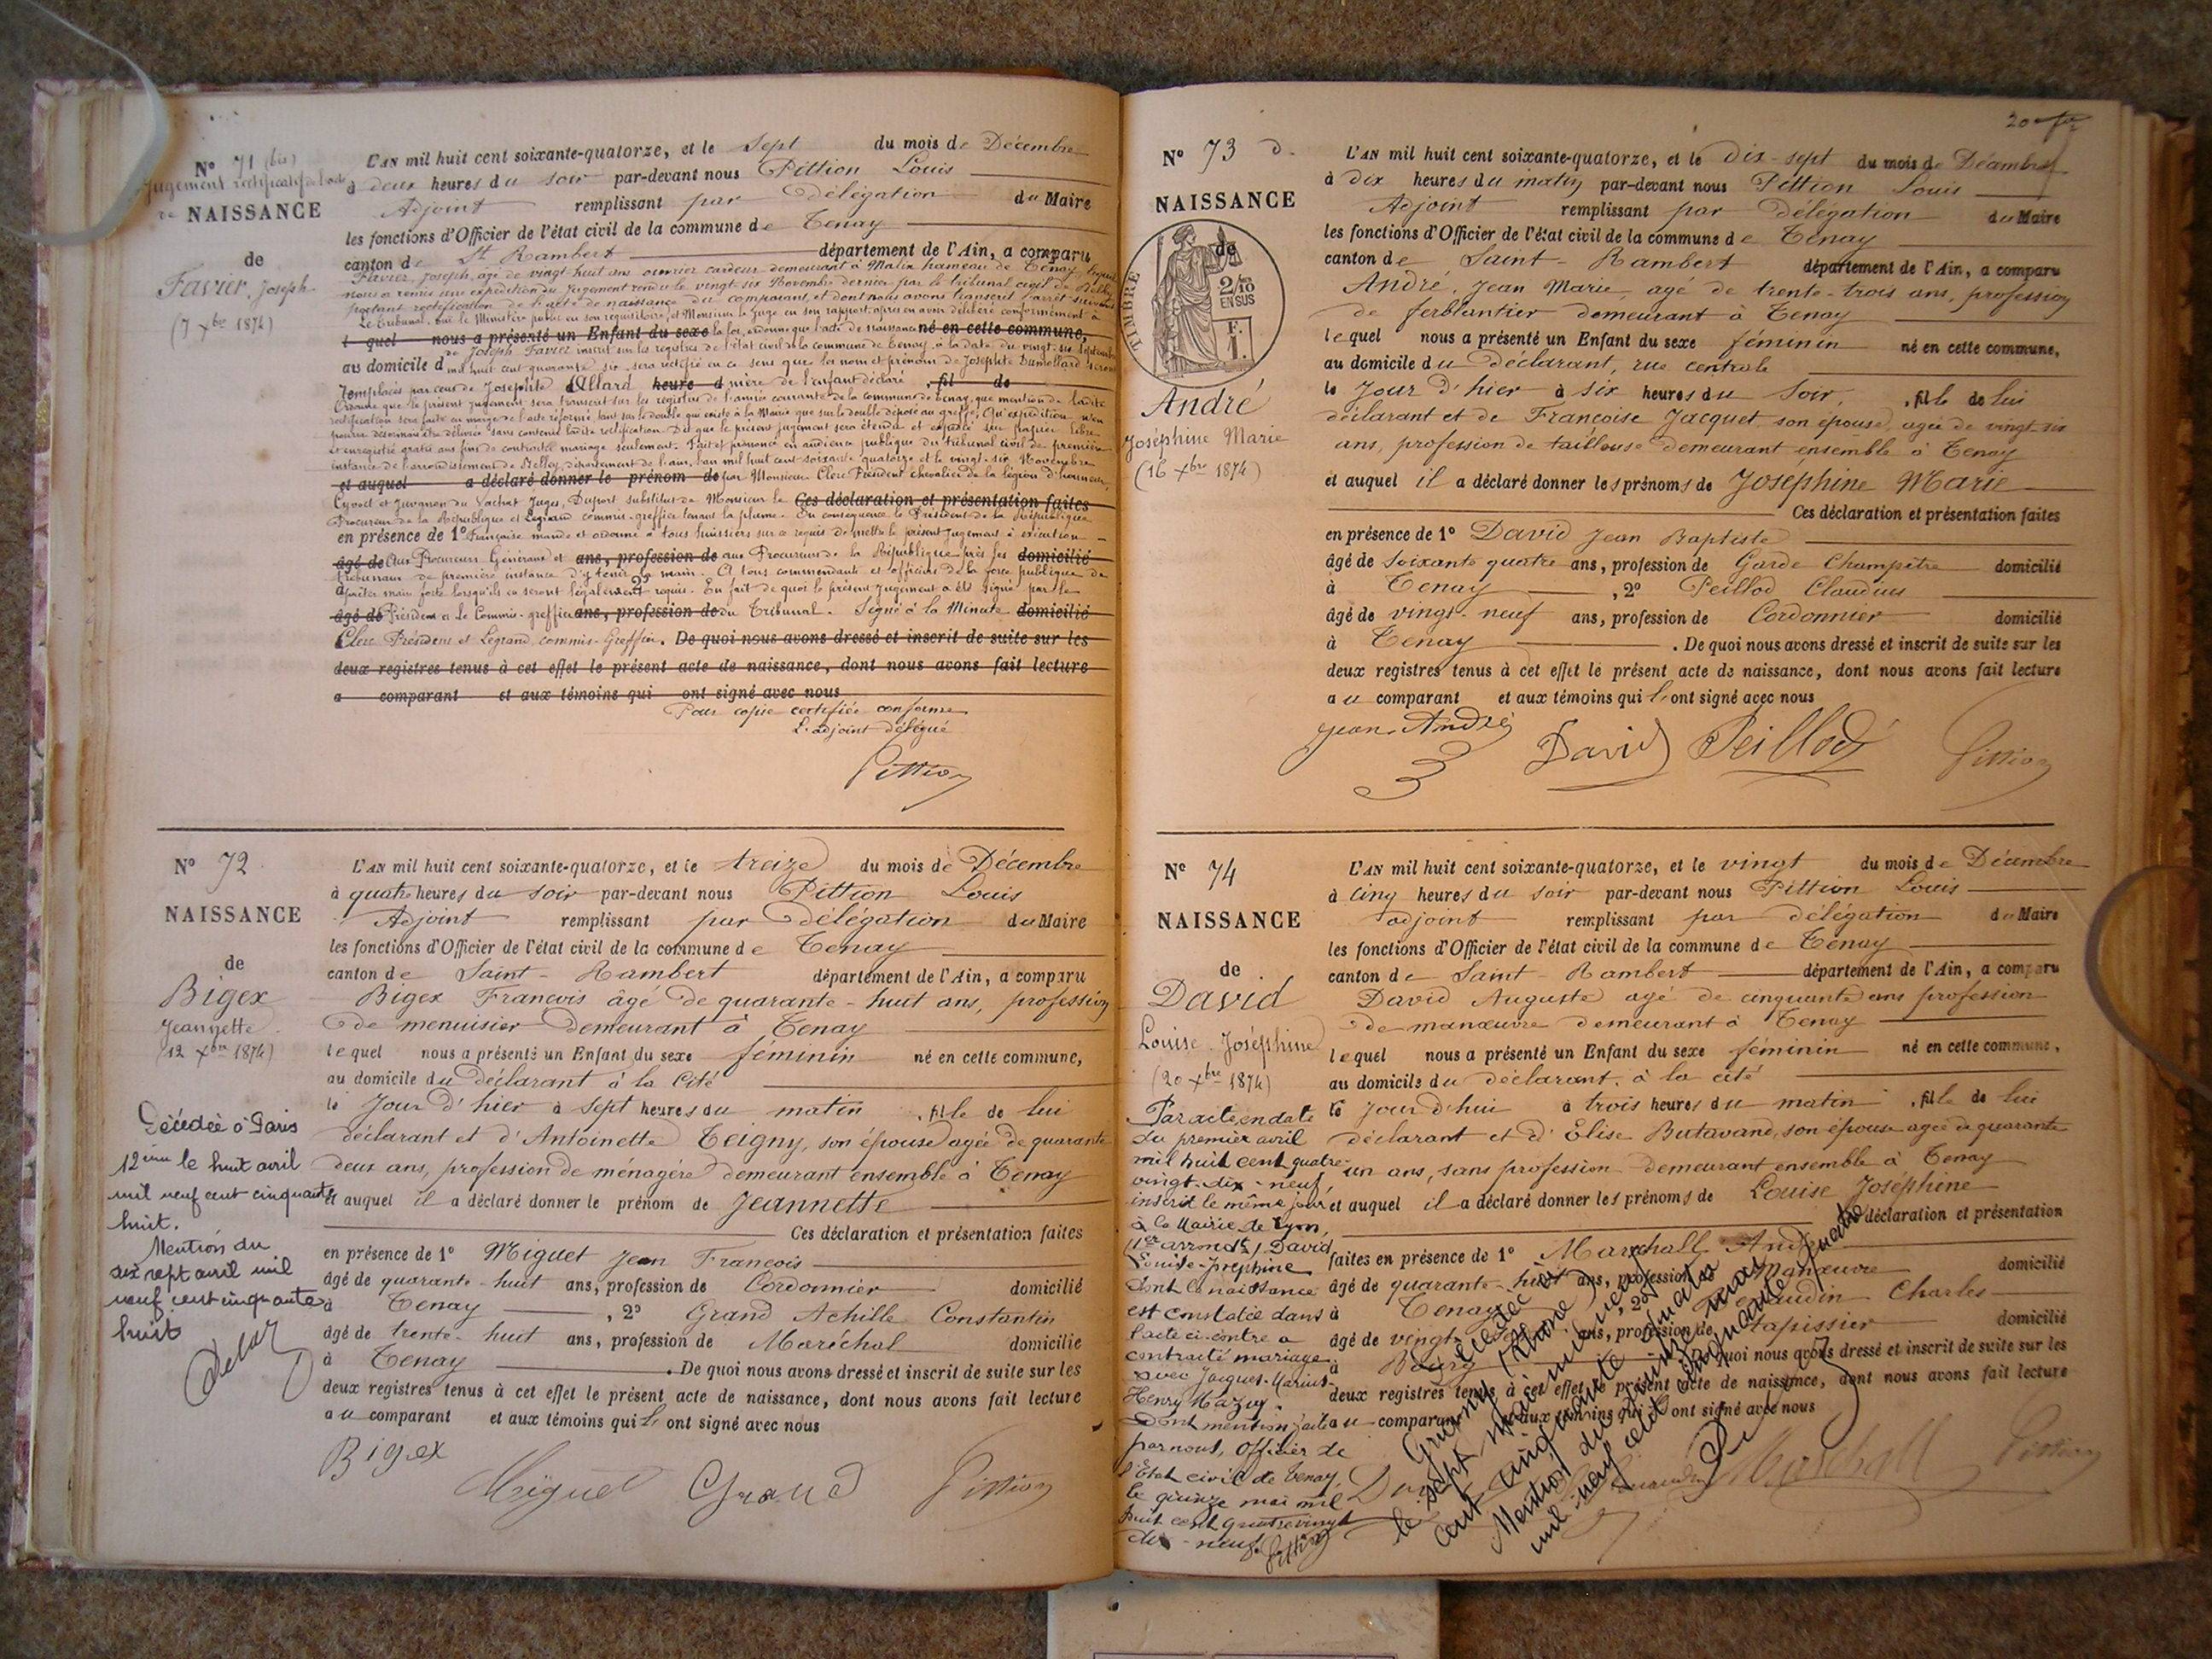 N° 71 (bis)
Jugement rectificatif de l'acte
de NAISSANCE
de
Favier, Joseph
(7 Xbre 1874)
L'AN mil huit cent soixante-quatorze, et le Sept du mois de Décembre
à deux heures du soir par-devant nous Pittion Louis
Adjoint remplissant par délégation du Maire
les fonctions d'Officier de l'état civil de la commune de Tenay
canton de St Rambert département de l'Ain, a comparu
Favier, Joseph, âgé de vingt huit ans ouvrier cardeur demeurant à Malix hameau de Tenay, lequel
nous a remis une expédition du Jugement rendu le vingt-six Novembre dernier par le tribunal civil de Belley
portant rectification de l'acte de naissance du comparant, et dont nous avons transcrit l'arrêt suivant
Le Tribunal, ouï le Ministère public en son réquisitoire, et Monsieur le Juge en son rapport, après en avoir délibéré conformément à
l quel nous a présenté un Enfant du sexe la loi, ordonne que l'acte de naissance né en cette commune,
de Joseph Favier inscrit sur les registres de l'état civil de la commune de Tenay à la date du vingt-six Septembre
au domicile d mil huit cent quarante six sera rectifié en ce sens que les nom et prénom de Josephte Dumollard seront
remplacés par ceux de Josephte Allard heure d mère de l'enfant déclaré , fil de
Ordonne que le présent Jugement sera transcrit sur les registres de l'année courante de la commune de Tenay, que mention de ladite
rectification sera faite en marge de l'acte réformé tant sur le double qui existe à la Mairie que sur le double déposé au greffe, Qu'expédition n'en
pourra désormais être délivrée sans contenir ladite rectification Dit que le présent jugement sera étendu et expédié sur papier libre
et enregistré gratis aux fins de contracter mariage seulement. Fait et prononcé en audience publique du tribunal civil de première
instance de l'arrondissement de Belley, département de l'Ain, l'an mil huit cent soixante quatorze et le vingt-six Novembre
et auquel a déclaré donner le prénom de par Monsieur Clerc Président chevalier de la légion d'honneur,
Juges, Duport substitut de Monsieur le Ces déclaration et présentation faites
Procureur de la République et Legrand commis-greffier tenant la plume. En conséquence le Président de la République
en présence de 1° Française mande et ordonne à tous huissiers sur ce requis de mettre le présent Jugement à exécution
âgé de Aux Procureurs Généraux et ans, profession de aux Procureurs de la République près les domicilié
tribunaux de première instance d'y tenir la main. A tous commandants et officiers de la force publique de
à prêter main forte lorsqu'ils en seront légalement requis. En fait de quoi le présent Jugement a été signé par le
âgé de Président et le Commis-greffier ans, profession de du Tribunal. Signé à la Minute domicilié
Clerc Président et Legrand, commis-Greffier. De quoi nous avons dressé et inscrit de suite sur les
deux registres tenus à cet effet le présent acte de naissance, dont nous avons fait lecture
a comparant et aux témoins qui ont signé avec nous
Pour copie certifiée conforme
L'adjoint délégué
Pittion
N° 72
NAISSANCE
de
Bigex
Jeannette
(12 Xbre 1874)
Décédée à Paris
12ème le huit avril
mil neuf cent cinquante
huit.
Mention du
dix sept avril mil
neuf cent cinquante
huit
L'AN mil huit cent soixante-quatorze, et le treize du mois de Décembre
à quatre heures du soir par-devant nous Pittion Louis
Adjoint remplissant par délégation du Maire
les fonctions d'Officier de l'état civil de la commune de Tenay
canton de Saint-Rambert département de l'Ain, a comparu
Bigex Francois âgé de quarante-huit ans, profession
de menuisier demeurant à Tenay
lequel nous a présenté un Enfant du sexe féminin né en cette commune,
au domicile du déclarant à la Cité
le Jour d'hier à sept heures du matin , fille de lui
déclarant et d'Antoinette Teigny, son épouse agée de quarante
deux ans, profession de ménagère demeurant ensemble à Tenay
et auquel il a déclaré donner le prénom de Jeannette
Ces déclaration et présentation faites
en présence de 1° Miguet Jean Francois
âgé de quarante-huit ans, profession de Cordonnier domicilié
à Tenay , 2° Grand Achille Constantin
âgé de trente-huit ans, profession de Maréchal domicilié
à Tenay . De quoi nous avons dressé et inscrit de suite sur les
deux registres tenus à cet effet le présent acte de naissance, dont nous avons fait lecture
au comparant et aux témoins qui ont signé avec nous
Bigex Miguet Grand Pittion
20
N° 73
NAISSANCE
de
TIMBRE
2/10
EN SUS
F.
1.
André
Joséphine Marie
(16 Xbre 1874)
L'AN mil huit cent soixante-quatorze, et le dix-sept du mois de Décembre
à dix heures du matin par-devant nous Pittion Louis
Adjoint remplissant par délégation du Maire
les fonctions d'Officier de l'état civil de la commune de Tenay
canton de Saint-Rambert département de l'Ain, a comparu
André, Jean Marie, agé de trente-trois ans, profession
de ferblantier demeurant à Tenay
lequel nous a présenté un Enfant du sexe féminin né en cette commune,
au domicile du déclarant, rue centrale
le Jour d'hier à six heures du Soir, , fille de lui
déclarant et de Françoise Jacquet, son épouse, agée de vingt-six
ans, profession de tailleuse demeurant ensemble à Tenay
et auquel il a déclaré donner les prénoms de Joséphine Marie
Ces déclaration et présentation faites
en présence de 1° David Jean Baptiste
âgé de Soixante quatre ans, profession de Garde Champêtre domicilié
à Tenay , 2° Peillod Claudius
âgé de vingt-neuf ans, profession de Cordonnier domicilié
à Tenay . De quoi nous avons dressé et inscrit de suite sur les
deux registres tenus à cet effet le présent acte de naissance, dont nous avons fait lecture
au comparant et aux témoins qui l'ont signé avec nous
Jean André David Peillod Pittion
N° 74
NAISSANCE
de
David
Louise Joséphine
(20 Xbre 1874)
Par acte en date
du premier avril
mil huit cent quatre-
vingt-dix-neuf,
inscrit le même jour
à la Mairie de Lyon,
(1er arrondt), David
Louise-Joséphine
dont la naissance
est constatée dans
l'acte ci-contre a
contracté mariage
avec Jacques-Marius-
Henry Mazuy.
Dont mention faite
par nous, Officier de
l'Etat civil de Tenay,
le quinze mai mil
huit cent quatre vingt
dix-neuf.
Pittion
L'AN mil huit cent soixante-quatorze, et le vingt du mois de Décembre
à Cinq heures du soir par-devant nous Pittion Louis
adjoint remplissant par délégation du Maire
les fonctions d'Officier de l'état civil de la commune de Tenay
canton de Saint-Rambert département de l'Ain, a comparu
David Auguste agé de cinquante ans profession
de manœuvre demeurant à Tenay
lequel nous a présenté un Enfant du sexe féminin né en cette commune,
au domicile du déclarant, à la cité
le jour d'hui à trois heures du matin , fille de lui
déclarant et d'Elise Butavand, son épouse agée de quarante
un ans, sans profession demeurant ensemble à Tenay
et auquel il a déclaré donner les prénoms de Louise Joséphine
déclaration et présentation
faites en présence de 1° Marchall André
âgé de quarante-huit ans, profession de Manœuvre domicilié
à Tenay , 2° Charles
âgé de vingt ans, profession de tapissier domicilié
à Bourg . De quoi nous avons dressé et inscrit de suite sur les
deux registres tenus à cet effet le présent acte de naissance, dont nous avons fait lecture
au comparant et aux témoins qui ont signé avec nous
Marchall Pittion
Décédée à
Grigny (Rhône)
le sept mai mil neuf
cent cinquante quatre
Mention du quinze mai
mil neuf cent cinquante quatre